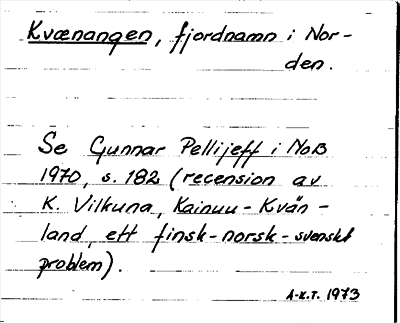 Kvænangen, fjordnamn i Nor-
den.
Se Gunnar Pellijeff i NoB
1970, s. 182 (recension av
K. Vilkuna, Kainuu - Kvän-
land, ett finsk-norsk-svenskt
problem).
A-K.T. 1973